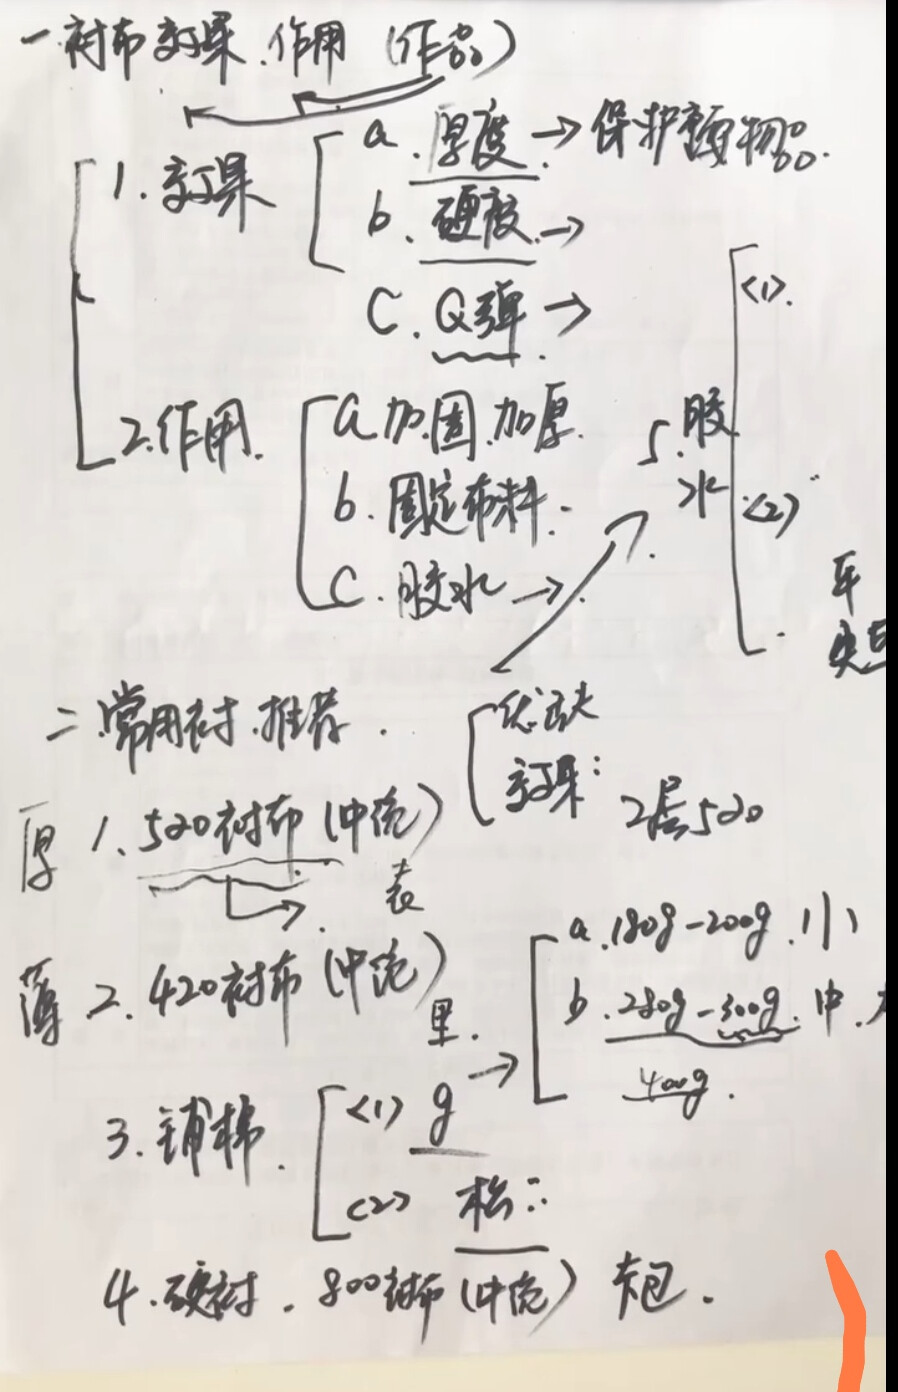 一.衬布效果.作用(作品)
1.效果
a.厚度.→保护爱物品.
b.硬度.→
C.Q弹.→
2.作用.
a加.固.加厚.
b.固定布料.
C.胶水→.
5.胶水
<1>.
<2>
车
二.常用衬.推荐.
优缺
效果:
厚 1.520衬布(中统)
表
2层520
薄 2.420衬布(中统)
里.
3.铺棉.
<1> g →
a.180g-200g.小
b.280g-300g.中.大
400g.
<2> 松:
4.硬衬.800衬布(中统) 卡包.